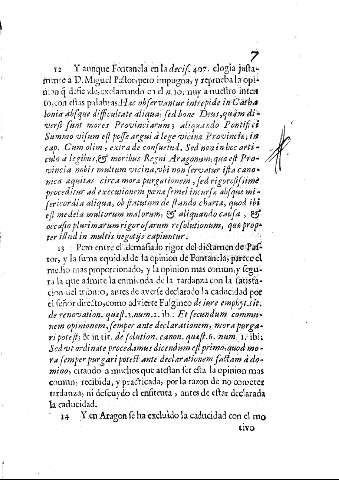 7
12 Y aunque Fontanela en la decis. 407. elogia justa-
mente a D. Miguel Pastor, pero impugna, y reprueba la opi-
nion q̃ defiẽde, exclamando en el n. 10. muy a nuestro inten
to, con estas palabras. Hæc observantur intrepide in Catha
lonia absque difficultate aliqua: sed bone Deus, quàm di-
versi sunt mores Provinciarum; aliquando Pontifici
Summo visum est posse argui à lege vicina Provinciæ, in
cap. Cum olim, extra de consuetud. Sed non in hoc arti-
culo à legibus, & moribus Regni Aragonum, quæ est Pro-
vincia nobis multum vicina, ubi non servatur ista cano-
nica æquitas circa moræ purgationem, sed rigorosissimè
proceditur ad executionem pœnæ semel incursæ absque mi-
sericordia aliqua, ob statutum de standũ chartæ, quod ibi
est medela multorum malorum, & aliquando causa, &
occasio plurimarum rigorosarum resolutionum, quæ prop-
ter illud in multis negotijs capiuntur.
13 Pero entre el demasiado rigor del dictamen de Pas-
tor, y la suma equidad de la opinion de Fontanela, parece el
medio mas proporcionado, y la opinion mas comun, y segu-
ra la que admite la enmienda de la tardanza con la satisfa-
cion del tributo, antes de averse declarado la caducidad por
el señor directo, como advierte Fulgineo de iure emphyt. tit.
de renovation. quæst. 1. num. 2. ibi: Et secundum commu-
nem opinionem, semper ante declarationem, mora purga-
ri potest; & in tit. de solution. canon. quæst. 6. num. 1. ibi:
Sed ut ordinatè procedamus dicendum est primo, quod mo-
ra semper purgari potest ante declarationem factam à do-
mino; citando a muchos que atestan ser esta la opinion mas
comun, recibida, y practicada, por la razon de no cometer
tardanza, ni descuydo el enfiteuta, antes de estar declarada
la caducidad.
14 Y en Aragon se ha excluido la caducidad con el mo
tivo